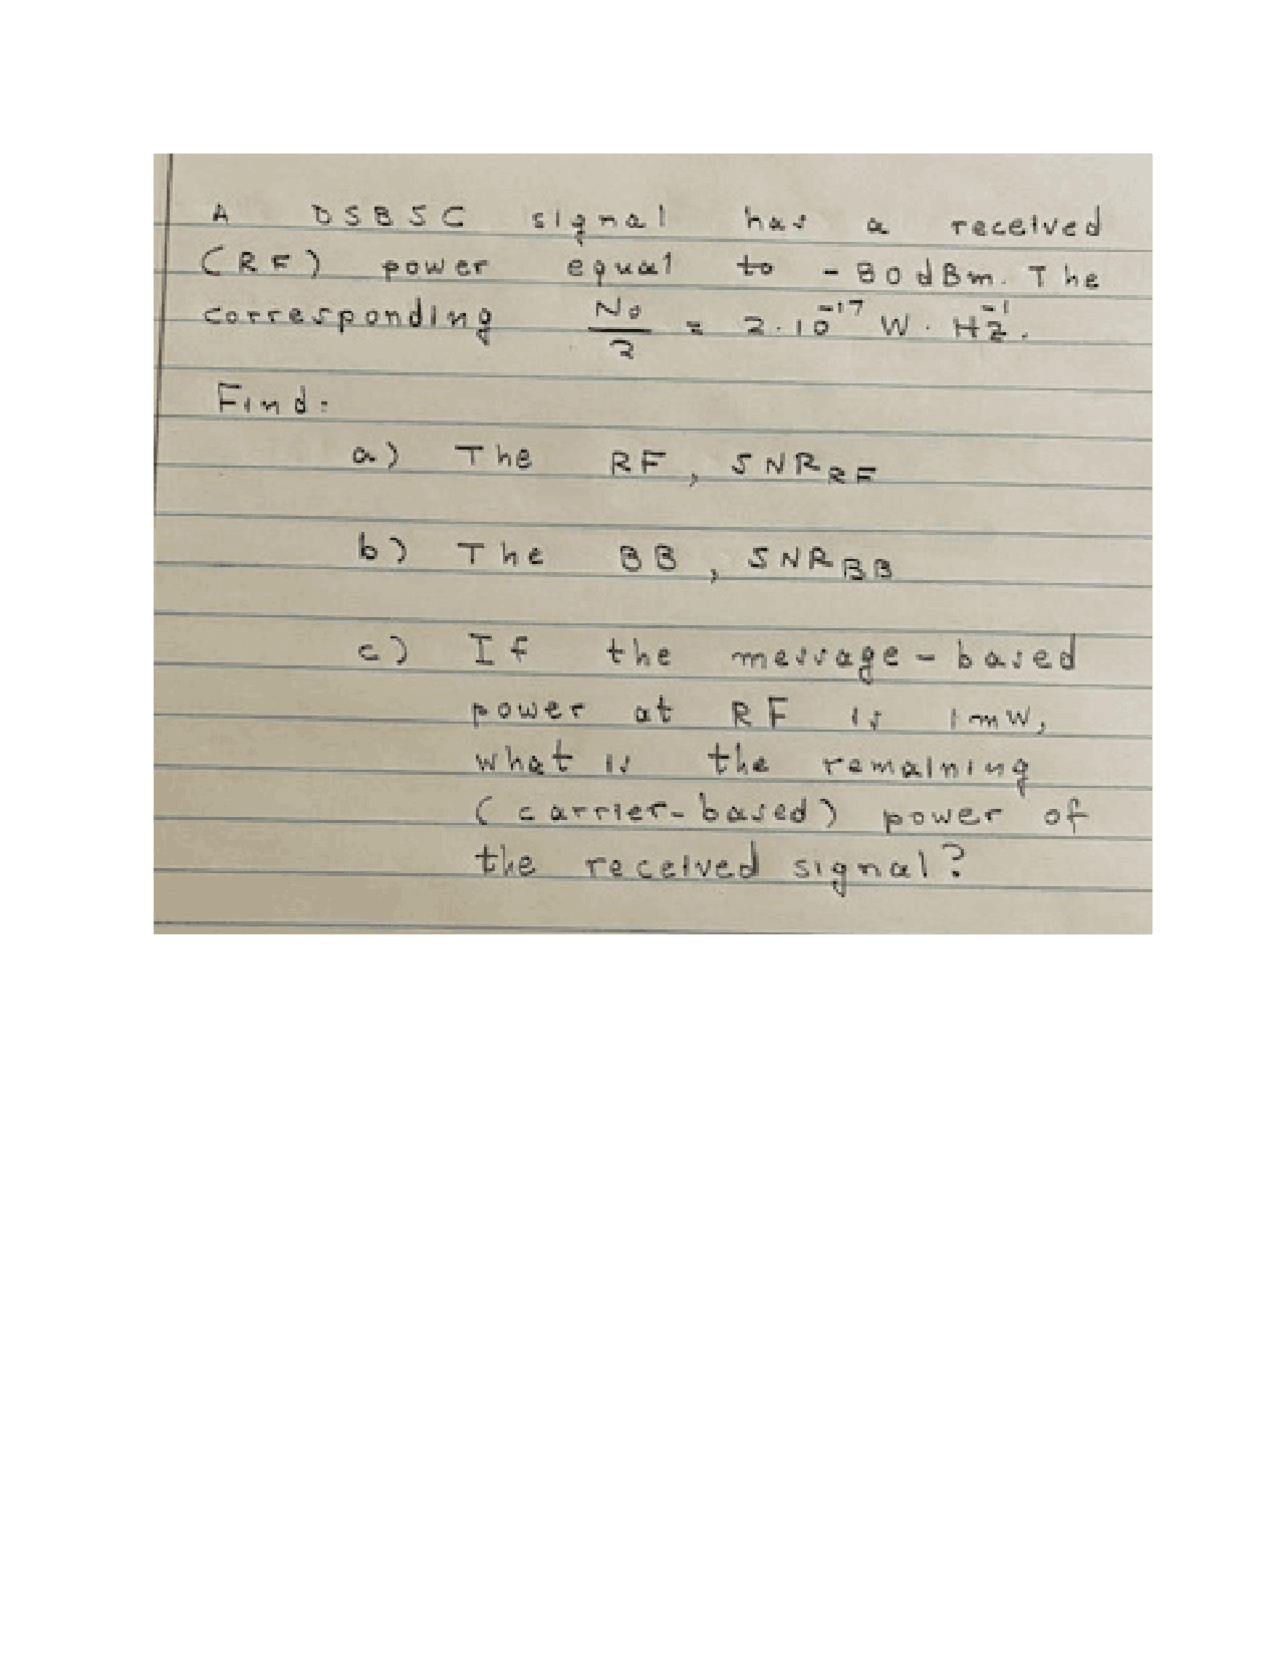 A DSBSC signal has a received
(RF) power equal to -80 dBm. The
corresponding N₀/2 = 2·10⁻¹⁷ W·Hz⁻¹.
Find:
a) The RF, SNR_RF
b) The BB, SNR_BB
c) If the message-based
power at RF is 1mW,
what is the remaining
(carrier-based) power of
the received signal?